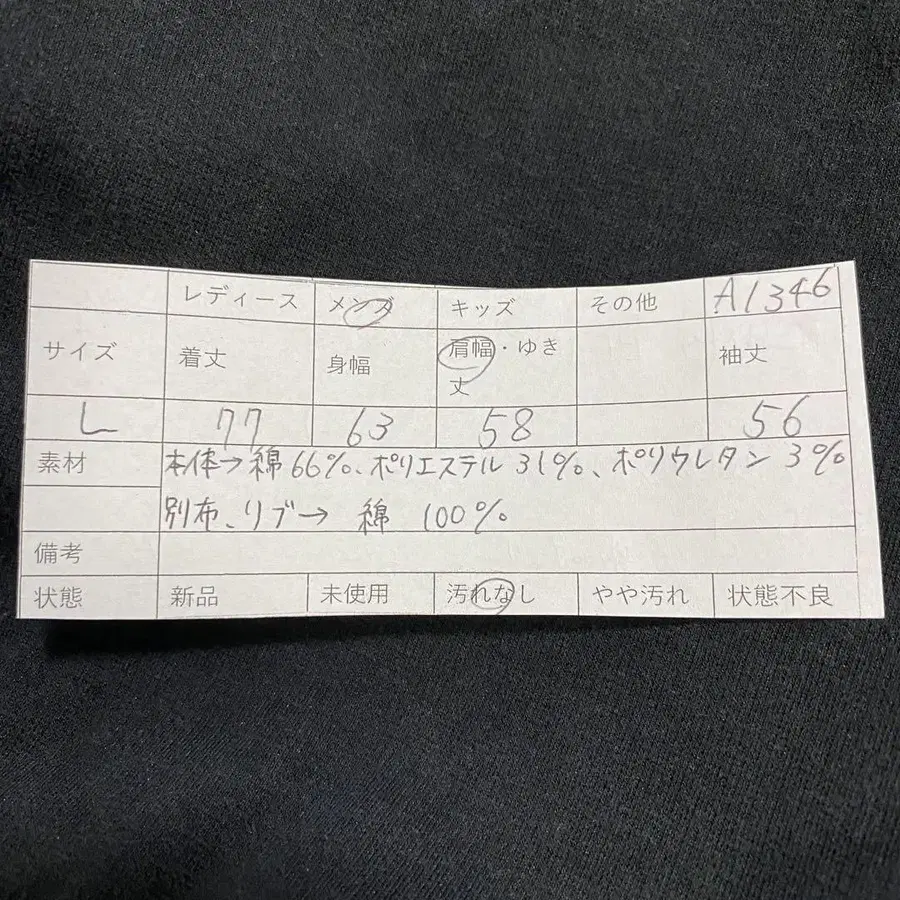 レディース メンズ キッズ その他 A1346
サイズ 着丈 身幅 肩幅・ゆき丈 袖丈
L 77 63 58 56
素材 本体→綿66%、ポリエステル31%、ポリウレタン3%
別布、リブ→ 綿 100%
備考
状態 新品 未使用 汚れなし やや汚れ 状態不良